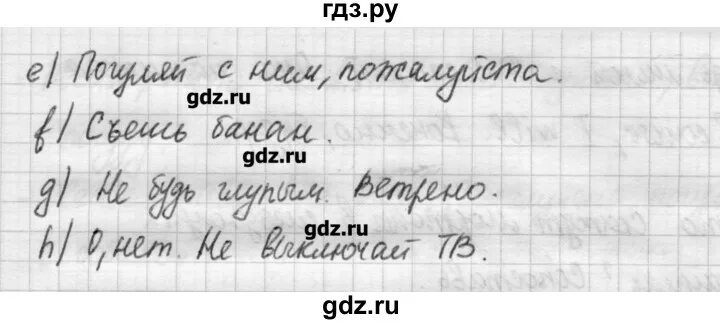 гдз.ру
e) Погуляй с ним, пожалуйста.
gdz.ru
f) Съешь банан.
g) Не будь глупым. Ветрено.
gdz.ru
h) О, нет. Не выключай ТВ.
gdz.ru